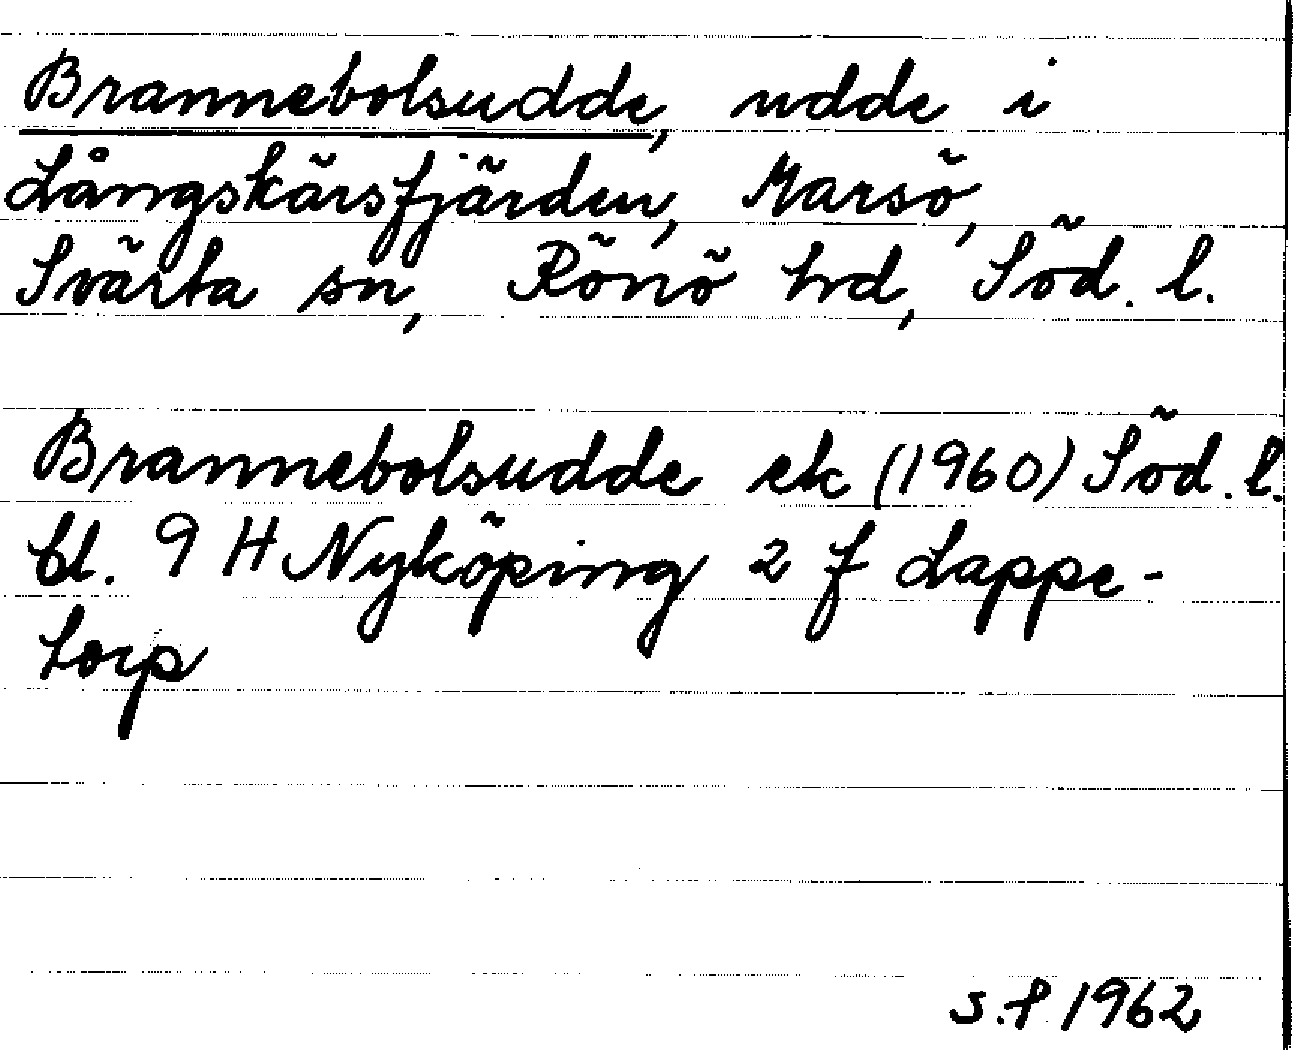 Brannebolsudde, udde i
Långskärsfjärden, Marsö,
Svärta sn, Rönö hd, Söd. l.
Brannebolsudde ek (1960) Söd. l.
bl. 9 H Nyköping 2 f Lappe-
torp
S.P. 1962